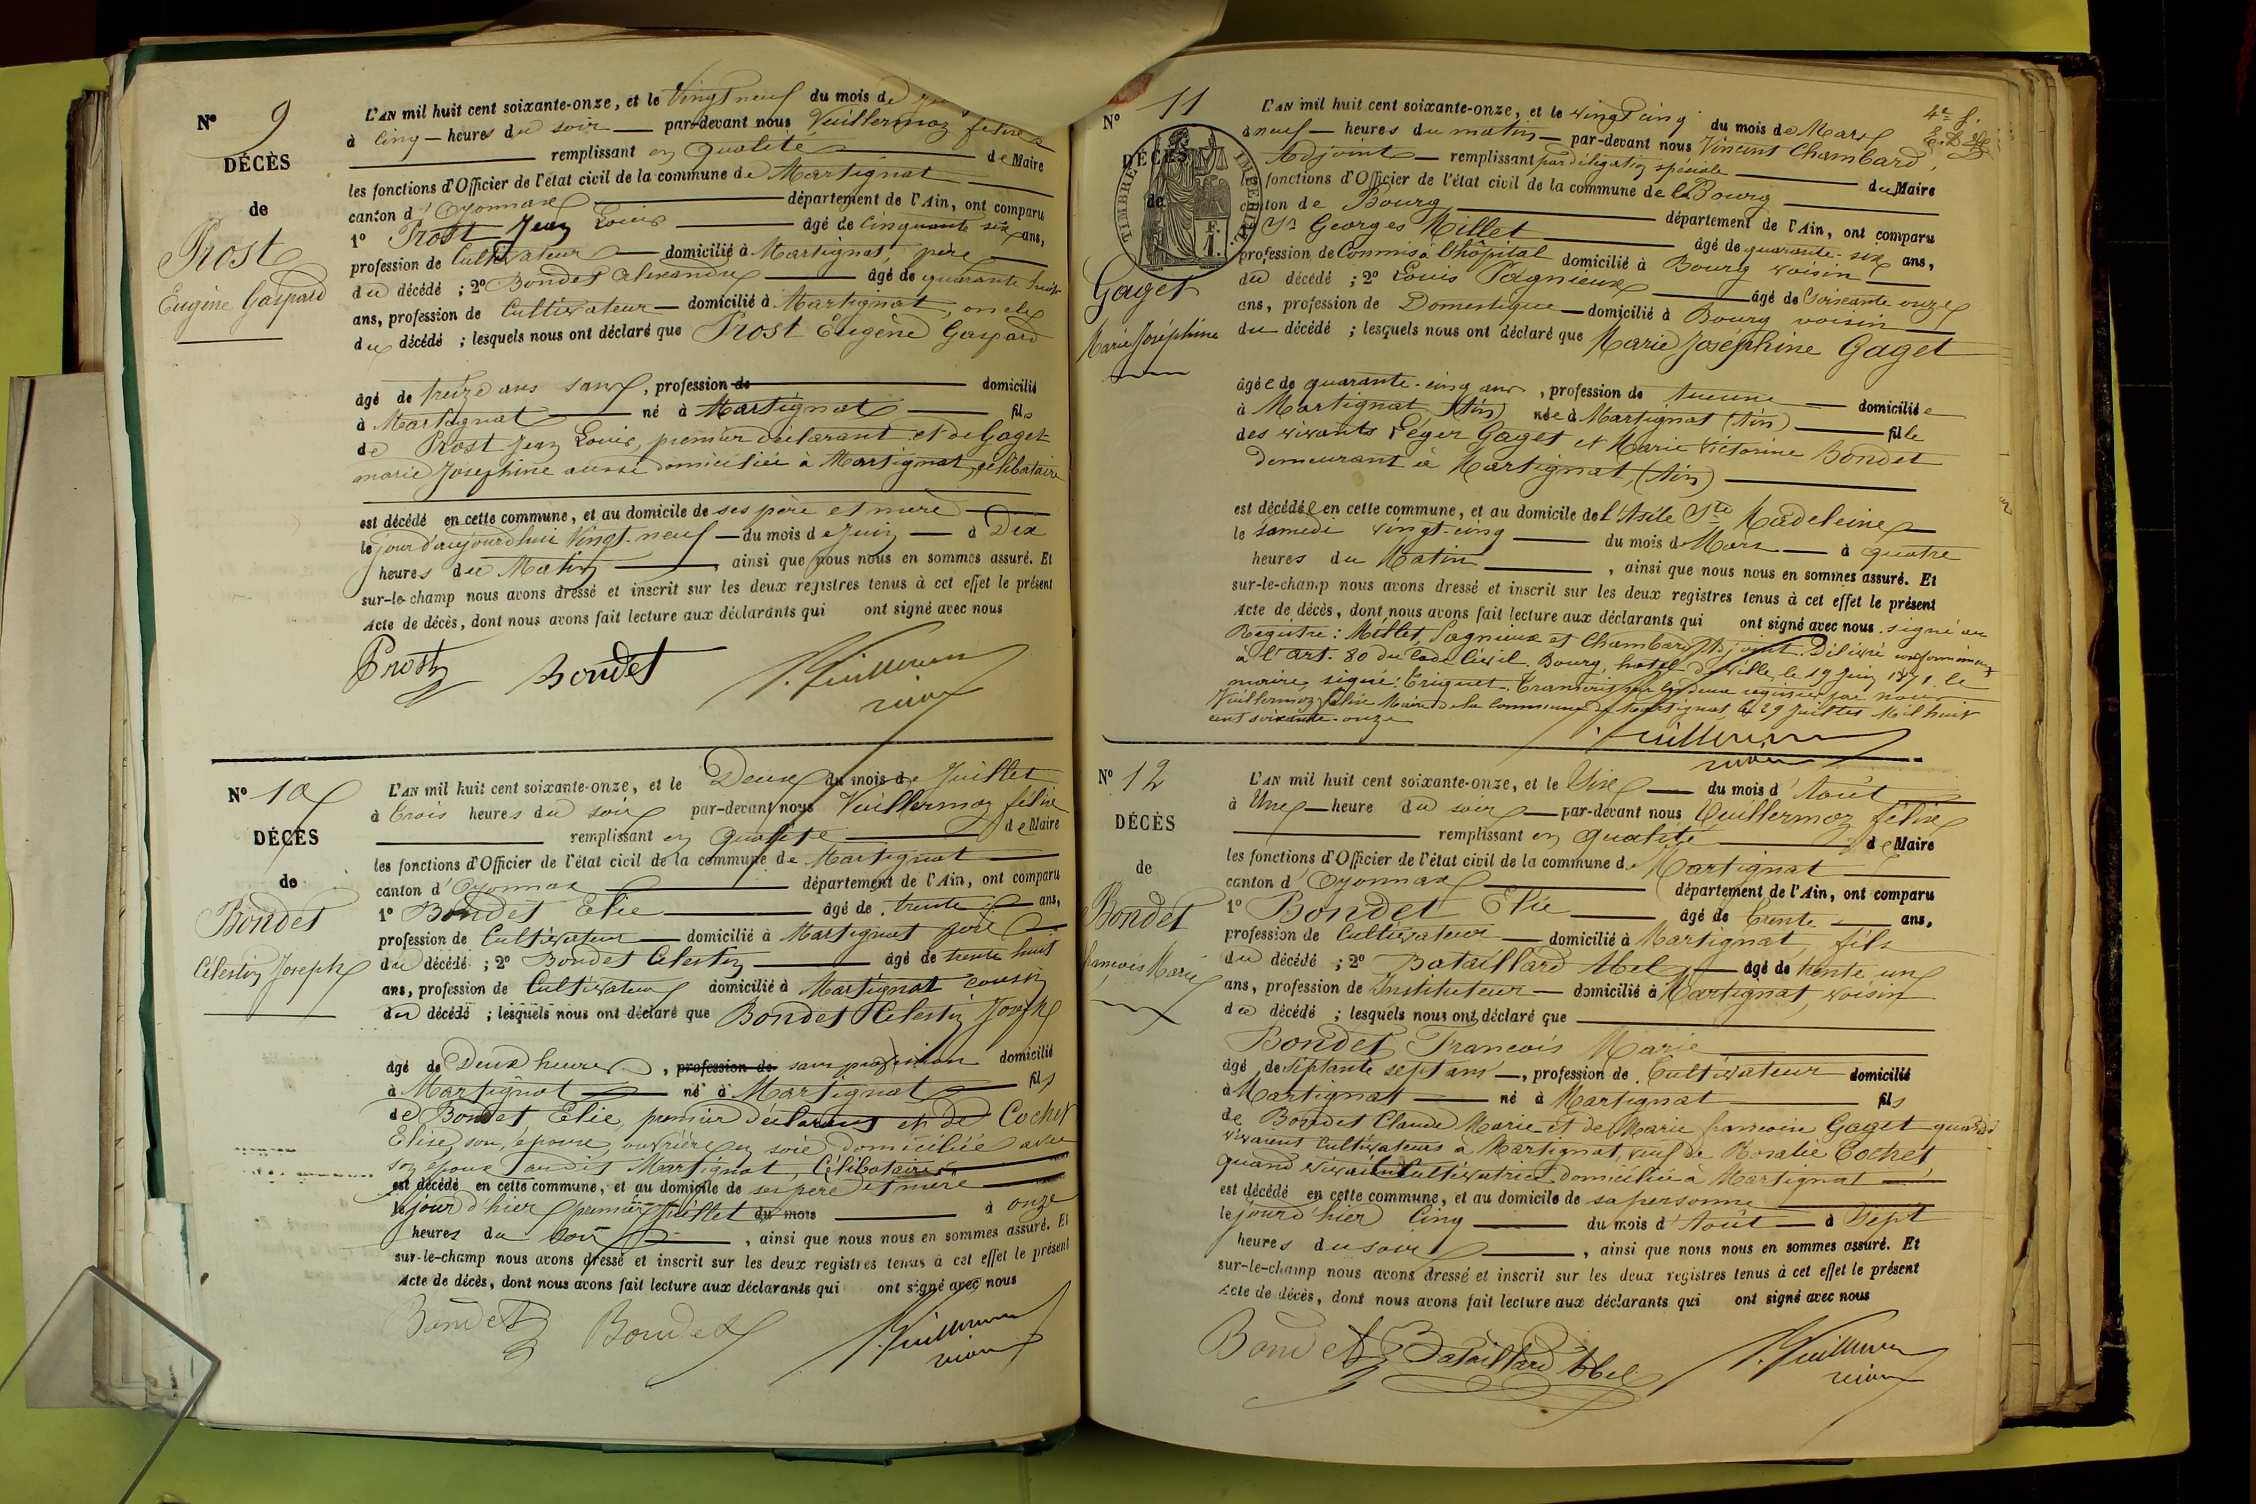 N° 9
DÉCÈS
de
Prost
Eugène Gaspard
L'AN mil huit cent soixante-onze, et le Vingt neuf du mois de
à Cinq heures du soir par-devant nous Vuillermoz félix
remplissant en qualité de Maire
les fonctions d'Officier de l'état civil de la commune de Martignat
canton d'Oyonnax département de l'Ain, ont comparu
1° Prost Jean Louis âgé de Cinquante six ans,
profession de Cultivateur domicilié à Martignat, père
du décédé ; 2° Bondet Alexandre âgé de quarante huit
ans, profession de Cultivateur domicilié à Martignat, oncle
du décédé ; lesquels nous ont déclaré que Prost Eugène Gaspard
âgé de treize ans sans, profession de domicilié
à Martignat né à Martignat fils
de Prost Jean Louis, premier déclarant et de Gaget
marie Josephine aussi domiciliée à Martignat, célibataire
est décédé en cette commune, et au domicile de ses père et mère
le jour d'aujourd'hui Vingt-neuf du mois de Juin à Dix
heures du Matin, ainsi que nous nous en sommes assuré. Et
sur-le-champ nous avons dressé et inscrit sur les deux registres tenus à cet effet le présent
Acte de décès, dont nous avons fait lecture aux déclarants qui ont signé avec nous
Prost Bondet
N° 10
DÉCÈS
de
Bondet
Célestin Joseph
L'AN mil huit cent soixante-onze, et le Deux du mois de Juillet
à Trois heures du soir par-devant nous Vuillermoz félix
remplissant en qualité de Maire
les fonctions d'Officier de l'état civil de la commune de Martignat
canton d'Oyonnax département de l'Ain, ont comparu
1° Bondet Elie âgé de trente ans,
profession de Cultivateur domicilié à Martignat père
du décédé ; 2° Bondet Célestin âgé de trente huit
ans, profession de Cultivateur domicilié à Martignat cousin
du décédé ; lesquels nous ont déclaré que Bondet Célestin Joseph
âgé de Deux heures, profession de sans profession domicilié
à Martignat né à Martignat fils
de Bondet Elie, premier déclarant et de Cochet
Elise, son épouse, ouvrière en soie, domiciliée avec
son époux audit Martignat, Célibataire
est décédé en cette commune, et au domicile de ses père et mère
le jour d'hier premier Juillet du mois à onze
heures du soir, ainsi que nous nous en sommes assuré. Et
sur-le-champ nous avons dressé et inscrit sur les deux registres tenus à cet effet le présent
Acte de décès, dont nous avons fait lecture aux déclarants qui ont signé avec nous
Bondet Bondet
N° 11
DÉCÈS
de
TIMBRE IMPÉRIAL
Gaget
Marie Joséphine
L'AN mil huit cent soixante-onze, et le vingt cinq du mois de Mars
à neuf heures du matin par-devant nous Vincent Chambard,
Adjoint remplissant par délégation spéciale du Maire
les fonctions d'Officier de l'état civil de la commune de Bourg
canton de Bourg département de l'Ain, ont comparu
1° Georges Millet âgé de quarante-six ans,
profession de Commis à l'hôpital domicilié à Bourg voisin
du décédé ; 2° Louis Pagnieux âgé de soixante onze
ans, profession de Domestique domicilié à Bourg voisin
du décédé ; lesquels nous ont déclaré que Marie Joséphine Gaget
âgée de quarante-cinq ans, profession de Aucune domiciliée
à Martignat (Ain) née à Martignat (Ain) fille
des vivants Léger Gaget et Marie Victorine Bondet
demeurant à Martignat, (Ain)
est décédée en cette commune, et au domicile de l'Asile Ste Madeleine
le samedi vingt-cinq du mois de Mars à quatre
heures du Matin, ainsi que nous nous en sommes assuré. Et
sur-le-champ nous avons dressé et inscrit sur les deux registres tenus à cet effet le présent
Acte de décès, dont nous avons fait lecture aux déclarants qui ont signé avec nous. signé au
Registre : Millet, Pagnieux et Chambard, Adjoint. Délivré conformément
à l'Art. 80 du Code Civil. Bourg, hotel de Ville, le 19 Juin 1871. le
maire, signé : Transcrit sur les deux registres par nous
Vuillermoz félix Maire de la Commune de Martignat, le 29 Juillet Mil huit
cent soixante-onze
N° 12
DÉCÈS
de
Bondet
François Marie
L'AN mil huit cent soixante-onze, et le Six du mois d'Août
à Une heure du soir par-devant nous Vuillermoz félix
remplissant en qualité de Maire
les fonctions d'Officier de l'état civil de la commune de Martignat
canton d'Oyonnax département de l'Ain, ont comparu
1° Bondet Elie âgé de trente ans,
profession de Cultivateur domicilié à Martignat, fils
du décédé ; 2° Bataillard Abel âgé de trente un
ans, profession de Instituteur domicilié à Martignat, voisin
du décédé ; lesquels nous ont déclaré que
Bondet François Marie
âgé de septante sept ans, profession de Cultivateur domicilié
à Martignat né à Martignat fils
de Bondet Claude Marie et de Marie francoise Gaget quand
vivaient Cultivateurs à Martignat, veuf de Rosalie Cochet,
quand vivait Cultivatrice domiciliée à Martignat
est décédé en cette commune, et au domicile de sa personne
le jour d'hier Cinq du mois d'Août à Sept
heures du soir, ainsi que nous nous en sommes assuré. Et
sur-le-champ nous avons dressé et inscrit sur les deux registres tenus à cet effet le présent
Acte de décès, dont nous avons fait lecture aux déclarants qui ont signé avec nous
Bondet Bataillard Abel